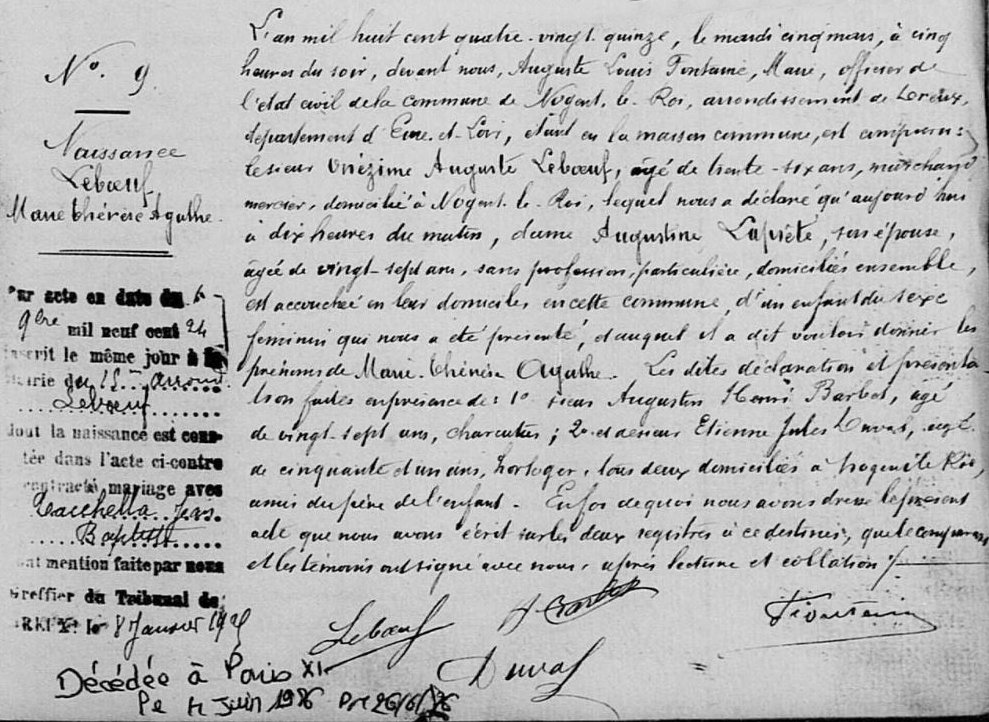 N°. 9
Naissance
Lebœuf
Marie Thérèse Agathe.
Par acte en date du 6
9bre mil neuf cent 24
inscrit le même jour à la
mairie du 15me arrond.
Lebœuf
dont la naissance est cons-
tée dans l'acte ci-contre
contracté mariage avec
Jean
Baptiste
ont mention faite par nous
Greffier du Tribunal de
DREUX le 8 Janvier 1925
Décédée à Paris XI
le 4 juin 1976 26/6/76
L'an mil huit cent quatre-vingt-quinze, le mardi cinq mars, à cinq
heures du soir, devant nous, Auguste Louis Fontaine, Maire, officier de
l'état civil de la commune de Nogent-le-Roi, arrondissement de Dreux,
département d'Eure-et-Loir, étant en la maison commune, est comparu:
le sieur Onézime Auguste Lebœuf, âgé de trente-six ans, marchand
mercier, domicilié à Nogent-le-Roi, lequel nous a déclaré qu'aujourd'hui
à dix heures du matin, dame Augustine Laprête, son épouse,
âgée de vingt-sept ans, sans profession particulière, domiciliés ensemble,
est accouchée en leur domicile en cette commune, d'un enfant du sexe
féminin qui nous a été présenté, et auquel il a dit vouloir donner les
prénoms de Marie-Thérèse Agathe. Les dites déclaration et présenta-
tion faites en présence de: 1° sieur Augustin Henri Barbot, âgé
de vingt-sept ans, charcutier; 2° et de sieur Etienne Jules Duval, âgé
de cinquante et un ans, horloger, tous deux domiciliés à Nogent-le-Roi,
amis du père de l'enfant. En foi de quoi nous avons dressé le présent
acte que nous avons écrit sur les deux registres à ce destinés, que le comparant
et les témoins ont signé avec nous, après lecture et collation /.
Lebœuf
Fontaine
Duval